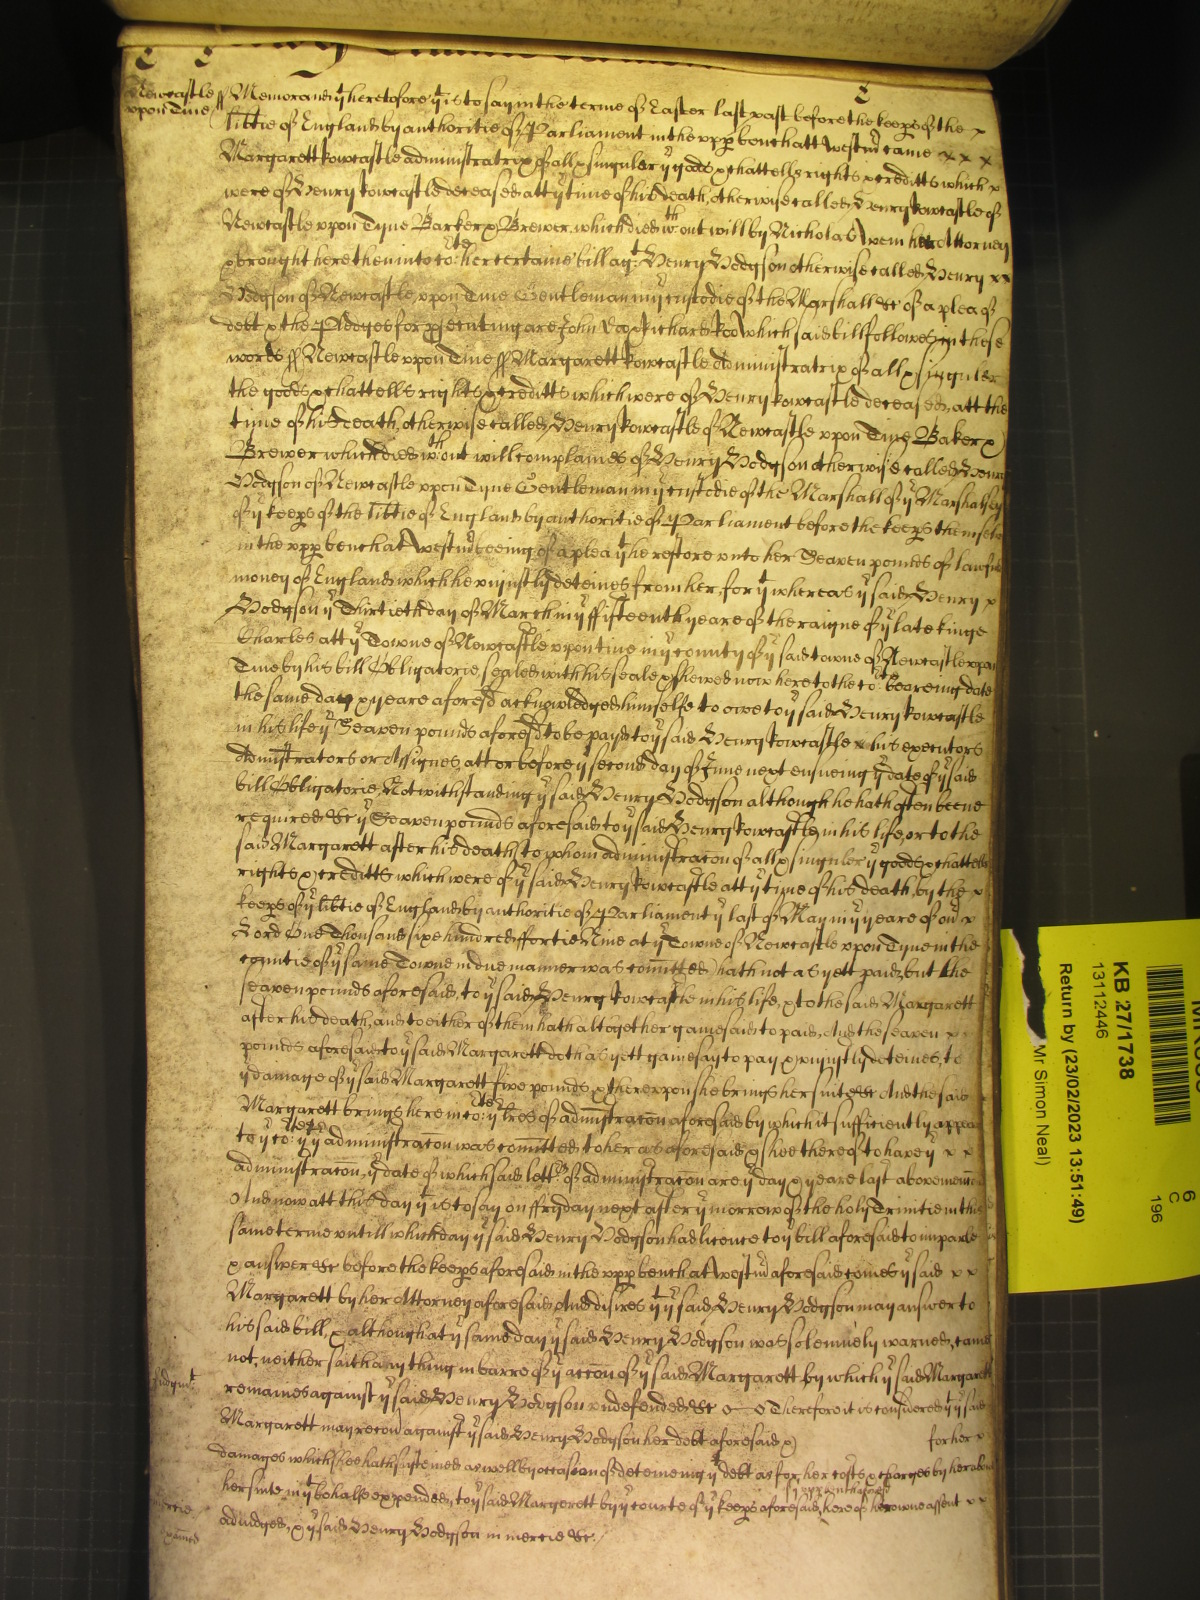 Newcastle
upon Tine
ss Memorand yt heretofore yt is to say in the terme of Easter last past before the keeps of the x
libtie of England by authoritie of Parliament in the upp bench att Westmr came x x x
Margarett Rowcastle administratrix of all & singuler ye goods & chattells rights & creditts which x
were of Henry Rowcastle deceased att ye time of his death, otherwise called Henry Rowcastle of
Newcastle upon Tyne Barker & Brewer, which died wth out will by Nicholas Wem her Attorney
& brought here then into ye Court her certaine bill agt Henry Hodgson otherwise called Henry xx
Hodgson of Newcastle upon Tine Gentleman in ye custodie of the Marshall &c of a plea of
debt & the Pledges for psecuting are John Doo & Richard Roo which said bill followes in these
words ss Newcastle upon Tine ss Margarett Rowcastle Administratrix of all & singuler
the goods & chattells rights & creditts which were of Henry Rowcastle deceased, att the
time of his death, otherwise called Henry Rowcastle of Newcastle upon Tine Baker &
Brewer which died wth out will complaines of Henry Hodgson otherwise called Henry
Hodgson of Newcastle upon Tyne Gentleman in ye custodie of the Marshall of ye Marshalsey
of ye keeps of the libtie of England by authoritie of Parliament before the keeps themselves
in the upp bench at Westmr beeing of a plea yt he restore unto her Seaven pounds of lawfull
money of England which he uniustly deteines from her, for yt whereas ye said Henry x
Hodgson ye Thirtieth day of March in ye ffifteenth yeare of the raigne of ye late kinge
Charles att ye Towne of Newcastle upon tine in ye county of ye said towne of Newcastle upon
Tine by his bill Obligatorie, sealed with his seale & shewed now here to the Court beareing date
the same day & yeare aforesd acknowledged himselfe to owe to ye said Henry Rowcastle
in his life ye Seaven pounds aforesd to be payd to ye said Henry Rowcastle & his executors
Administrators or Assignes, att or before ye second day of June next ensueing ye date of ye said
bill Obligatorie, Notwithstanding ye said Henry Hodgson although he hath often beene
required &c ye Seaven pounds aforesaid to ye said Henry Rowcastle, in his life, or to the
said Margarett after his death (to whom administracon of all & singuler ye goods & chattells
rights & creditts which were of ye said Henry Rowcastle att ye time of his death, by the x
keeps of ye libtie of England by authoritie of Parliament ye last of May in ye yeare of our x
Lord One Thousand sixe hundred ffortie Nine at ye Towne of Newcastle upon Tyne in the
countie of ye same Towne in due manner was comitted) hath not as yett paid, but the
seaven pounds aforesaid, to ye said Henry Rowcastle in his life, & to the said Margarett
after his death, and to either of them hath altogether gainesaid to paie, And the seaven x
pounds aforesaid to ye said Margarett doth as yett gainesay to pay & uniustly deteines, to
ye damage of ye said Margarett five pounds, & thereupon she brings her suite &c And the said
Margarett brings here in to ye Court lres of administracon aforesaid by which it sufficiently appeares
to ye Court yt ye administracon was comitted to her as aforesaid & shee thereof to have ye x x
administracon, ye date of which said letters of administracon are ye day & yeare last abovemenc
And now att this day yt is to say on ffryday next after ye morrow of the holy Trinitie in this
same terme untill which day ye said Henry Hodgson had licence to ye bill aforesaid to imparle
& answere &c before the keeps aforesaid in the upp bench at Westmr aforesaid comes ye said x x
Margarett by her Attorney aforesaid And disires yt ye said Henry Hodgson may answer to
his said bill, & although at ye same day ye said Henry Hodgson was solemnely warned, came
not, neither saith any thing in barre of ye accon of ye said Margarett by which ye said Margarett
Judgmt
remaines against ye said Henry Hodgson undefended &c Therefore it is considered yt ye said
Margarett may recov against ye said Henry Hodgson her debt aforesaid & for her x
damages which shee hath susteined as well by occasion of deteineing yt debt as for her costs & charges by her about
her suite in yt behalfe expended, to ye said Margarett by ye courte of ye keeps aforesaid, here of her owne assent x x
adiudged, & ye said Henry Hodgson in mercie &c.
KB 27/1738
13112446
Return by (23/02/2023 13:51:49)
Mr Simon Neal)
6
C
196